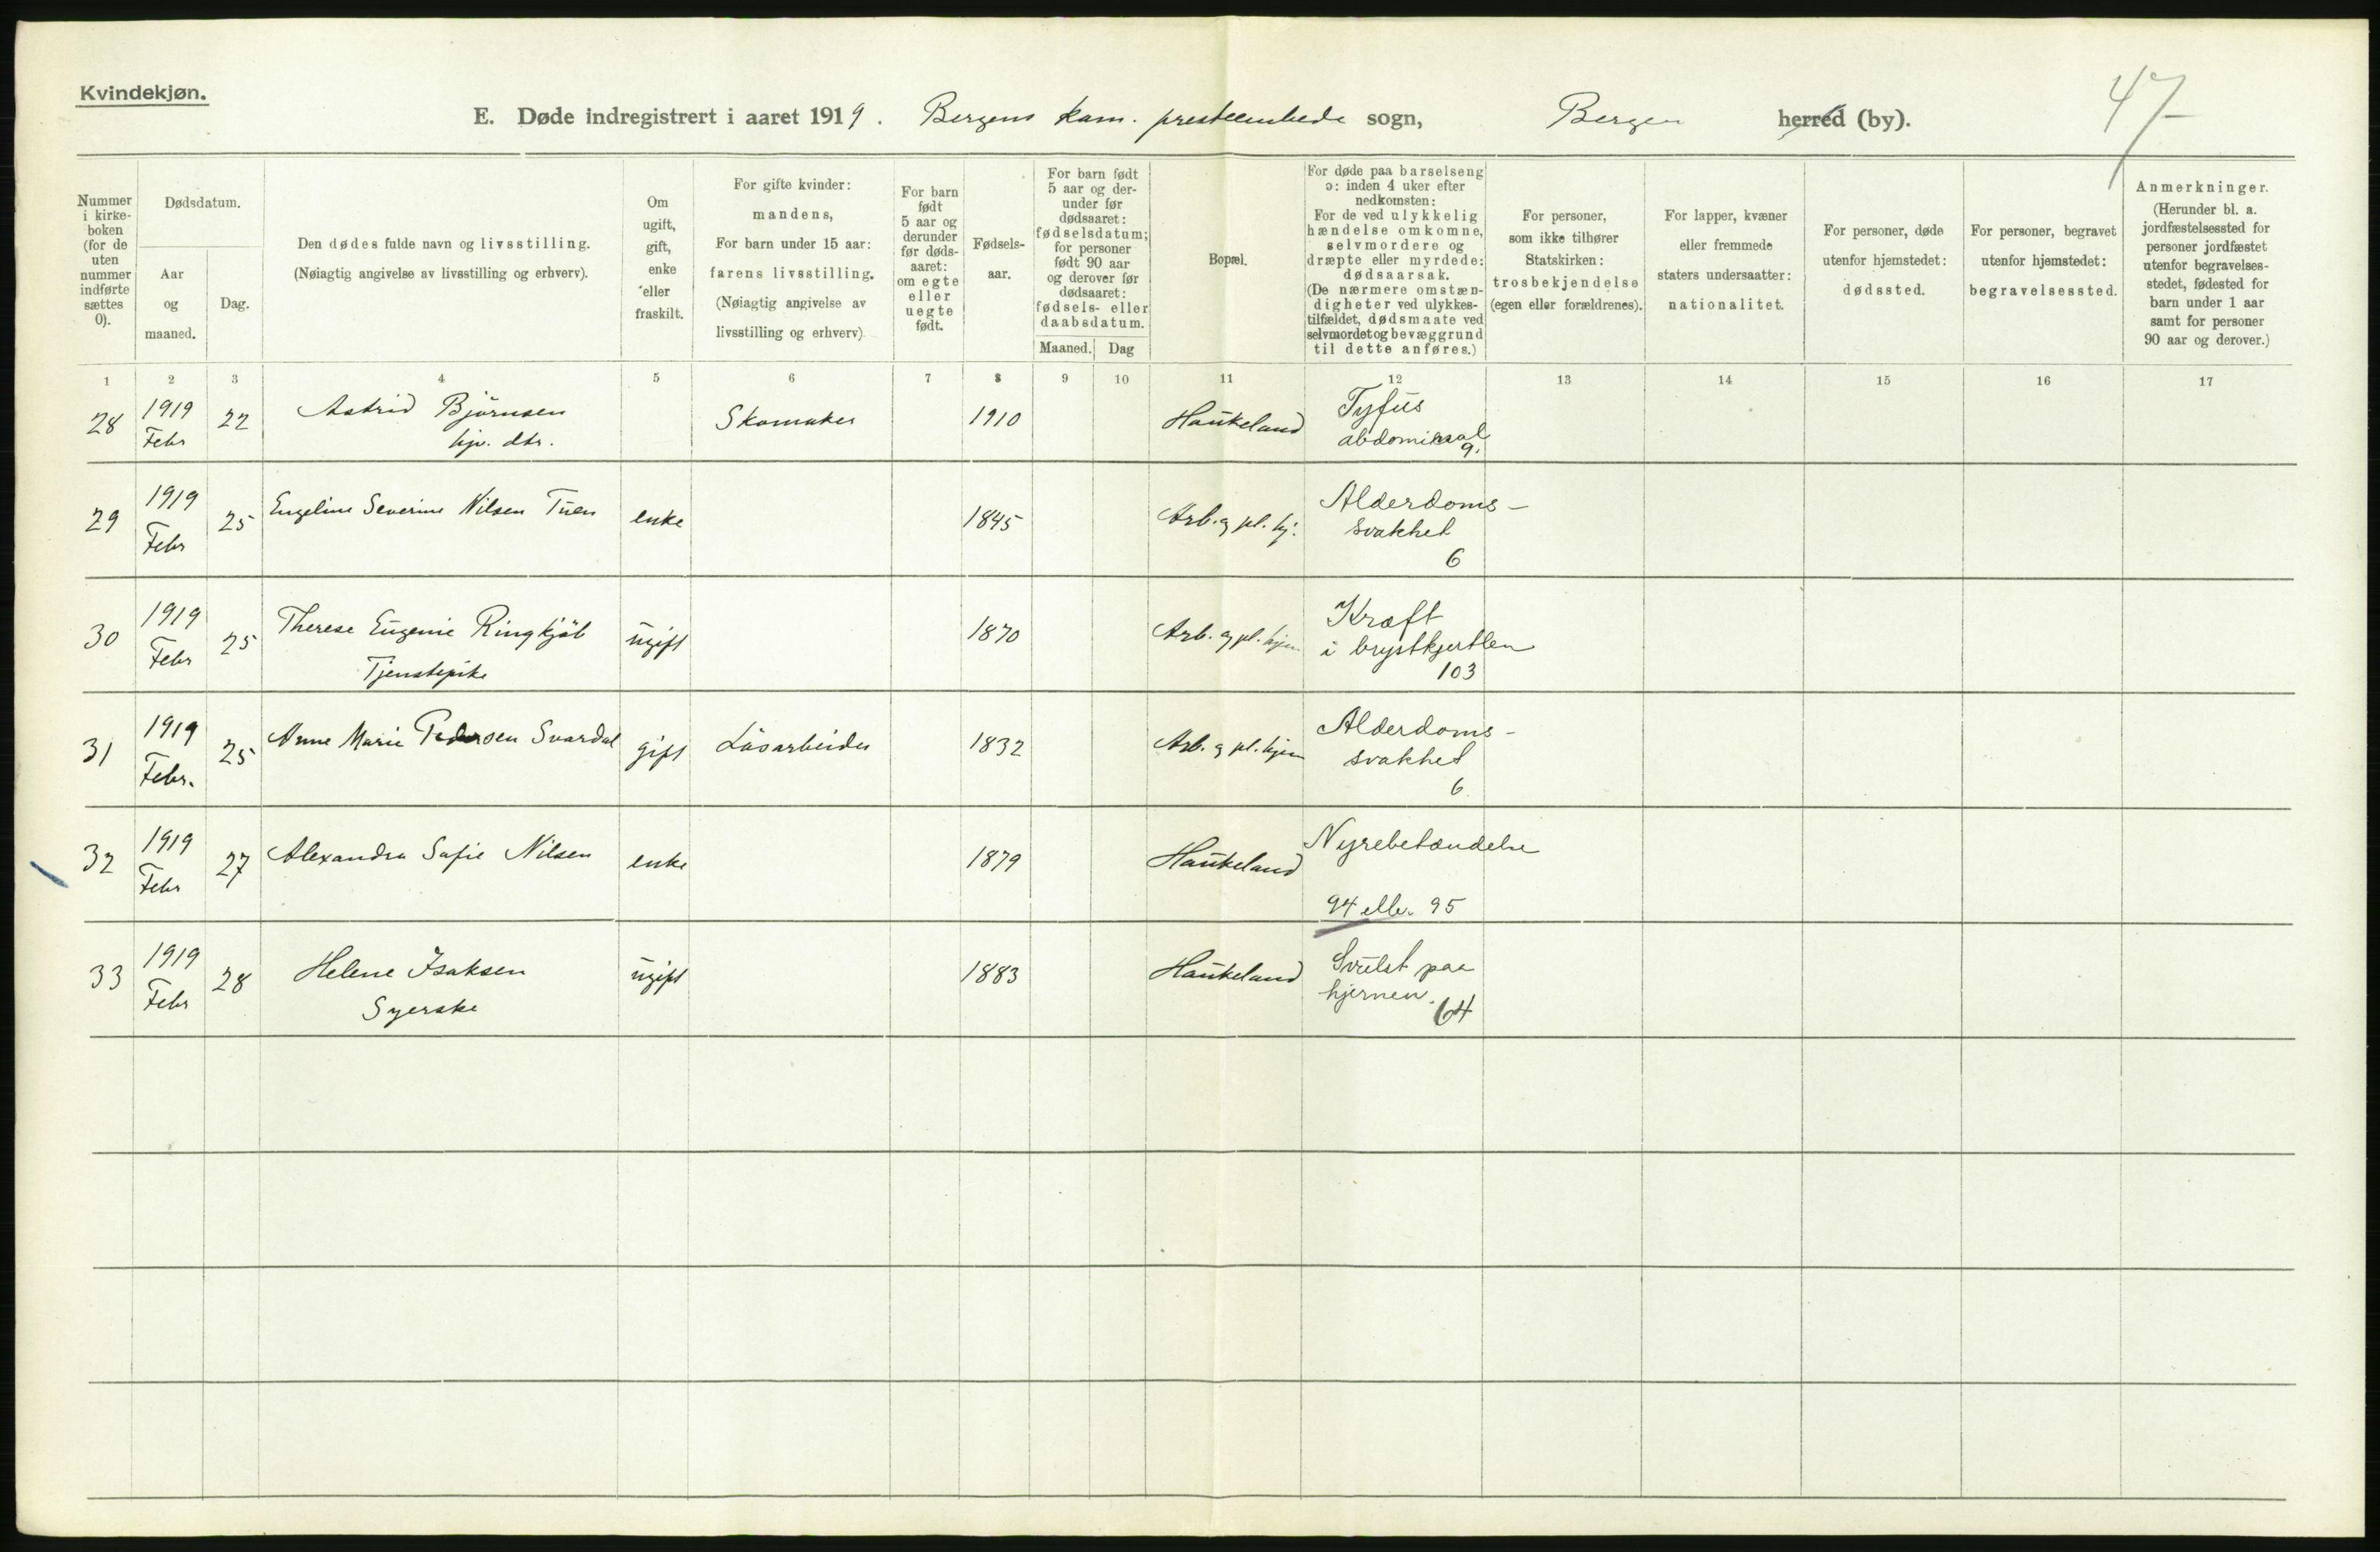 Kvindekjøn.
47
E. Døde indregistrert i aaret 1919. Bergens kom. presteembede sogn, Bergen herred (by).
Nummer i kirkeboken (for de uten nummer indførte sættes 0).
Dødsdatum.
Aar og maaned.
Dag.
Den dødes fulde navn og livsstilling.
(Nøiagtig angivelse av livsstilling og erhverv).
Om ugift, gift, enke eller fraskilt.
For gifte kvinder: mandens,
For barn under 15 aar: farens livsstilling.
(Nøiagtig angivelse av livsstilling og erhverv).
For barn født 5 aar og derunder før dødsaaret: om egte eller uegte født.
Fødselsaar.
For barn født 5 aar og derunder før dødsaaret: fødselsdatum; for personer født 90 aar og derover før dødsaaret: fødsels- eller daabsdatum.
Maaned. Dag
Bopæl.
For døde paa barselseng ɔ: inden 4 uker efter nedkomsten:
For de ved ulykkelig hændelse omkomne, selvmordere og dræpte eller myrdede: dødsaarsak.
(De nærmere omstændigheter ved ulykkestilfældet, dødsmaate ved selvmordet og bevæggrund til dette anføres.)
For personer, som ikke tilhører Statskirken: trosbekjendelse (egen eller forældrenes).
For lapper, kvæner eller fremmede staters undersaatter: nationalitet.
For personer, døde utenfor hjemstedet: dødssted.
For personer, begravet utenfor hjemstedet: begravelsessted.
Anmerkninger.
(Herunder bl. a. jordfæstelsessted for personer jordfæstet utenfor begravelsesstedet, fødested for barn under 1 aar samt for personer 90 aar og derover.)
1 2 3 4 5 6 7 8 9 10 11 12 13 14 15 16 17
28 1919 Febr 22 Astrid Björnsen Skomaker 1910 Haukeland Tyfus
hjv. dtr. abdominal
9.
29 1919 Febr 25 Engeline Severine Nilsen Tuen enke 1845 Arb. og pl. hj. Alderdoms-
svakhet
6
30 1919 Febr 25 Therese Eugenie Ringkjöb ugift 1870 Arb. og pl. hjem Kræft
Tjenstepike i brystkjertlen
103
31 1919 Febr. 25 Anne Marie Pedersen Svardal gift Lösarbeider 1832 Arb. og pl. hjem Alderdoms-
svakhet
6.
32 1919 Febr 27 Alexandra Sofie Nilsen enke 1879 Haukeland Nyrebetændelse
94 elle. 95
33 1919 Febr 28 Helene Isaksen ugift 1883 Haukeland Svulst paa
Syerske hjernen.
64